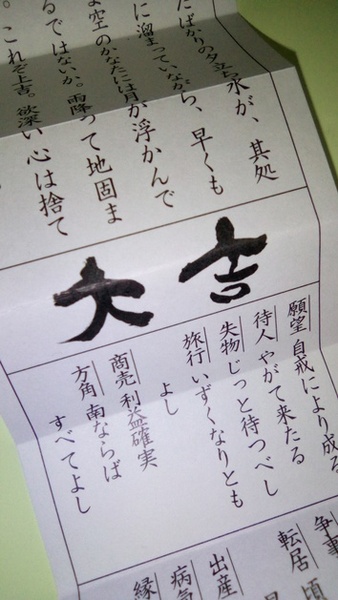 たばかりの夕立ち水が、其処
に溜まっていながら、早くも
空のかなたには月が浮かんで
るではないか。雨降って地固ま
。これぞ上吉。欲深い心は捨て
大吉
願望 自戒により成る
待人 やがて来たる
失物 じっと待つべし
旅行 いずくなりとも
よし
商売 利益確実
方角 南ならば
すべてよし
争事
転居
出産
病気
縁